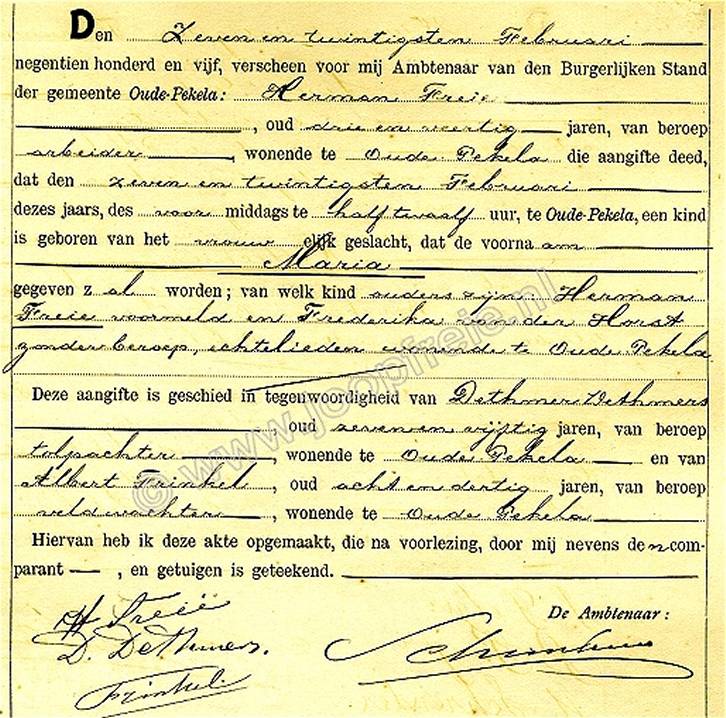 Den Zeven en twintigsten Februari
negentien honderd en vijf, verscheen voor mij Ambtenaar van den Burgerlijken Stand
der gemeente Oude-Pekela: Herman Freie
, oud drie en veertig jaren, van beroep
arbeider, wonende te Oude Pekela die aangifte deed,
dat den zeven en twintigsten Februari
dezes jaars, des voor middags te half twaalf uur, te Oude-Pekela, een kind
is geboren van het vrouw elijk geslacht, dat de voorna am
Maria
gegeven z al worden; van welk kind ouders zijn Herman
Freie voormeld en Frederika van der Horst
zonder beroep, echtelieden wonende te Oude Pekela
Deze aangifte is geschied in tegenwoordigheid van Dethmer Dethmers
, oud zeven en vijftig jaren, van beroep
tolpachter, wonende te Oude Pekela en van
Albert Frinkel, oud acht en dertig jaren, van beroep
veldwachter, wonende te Oude Pekela
Hiervan heb ik deze akte opgemaakt, die na voorlezing, door mij nevens den com-
parant, en getuigen is geteekend.
H Freië
De Ambtenaar:
D. Dethmers.
Frinkel.
© www.joopfreie.nl